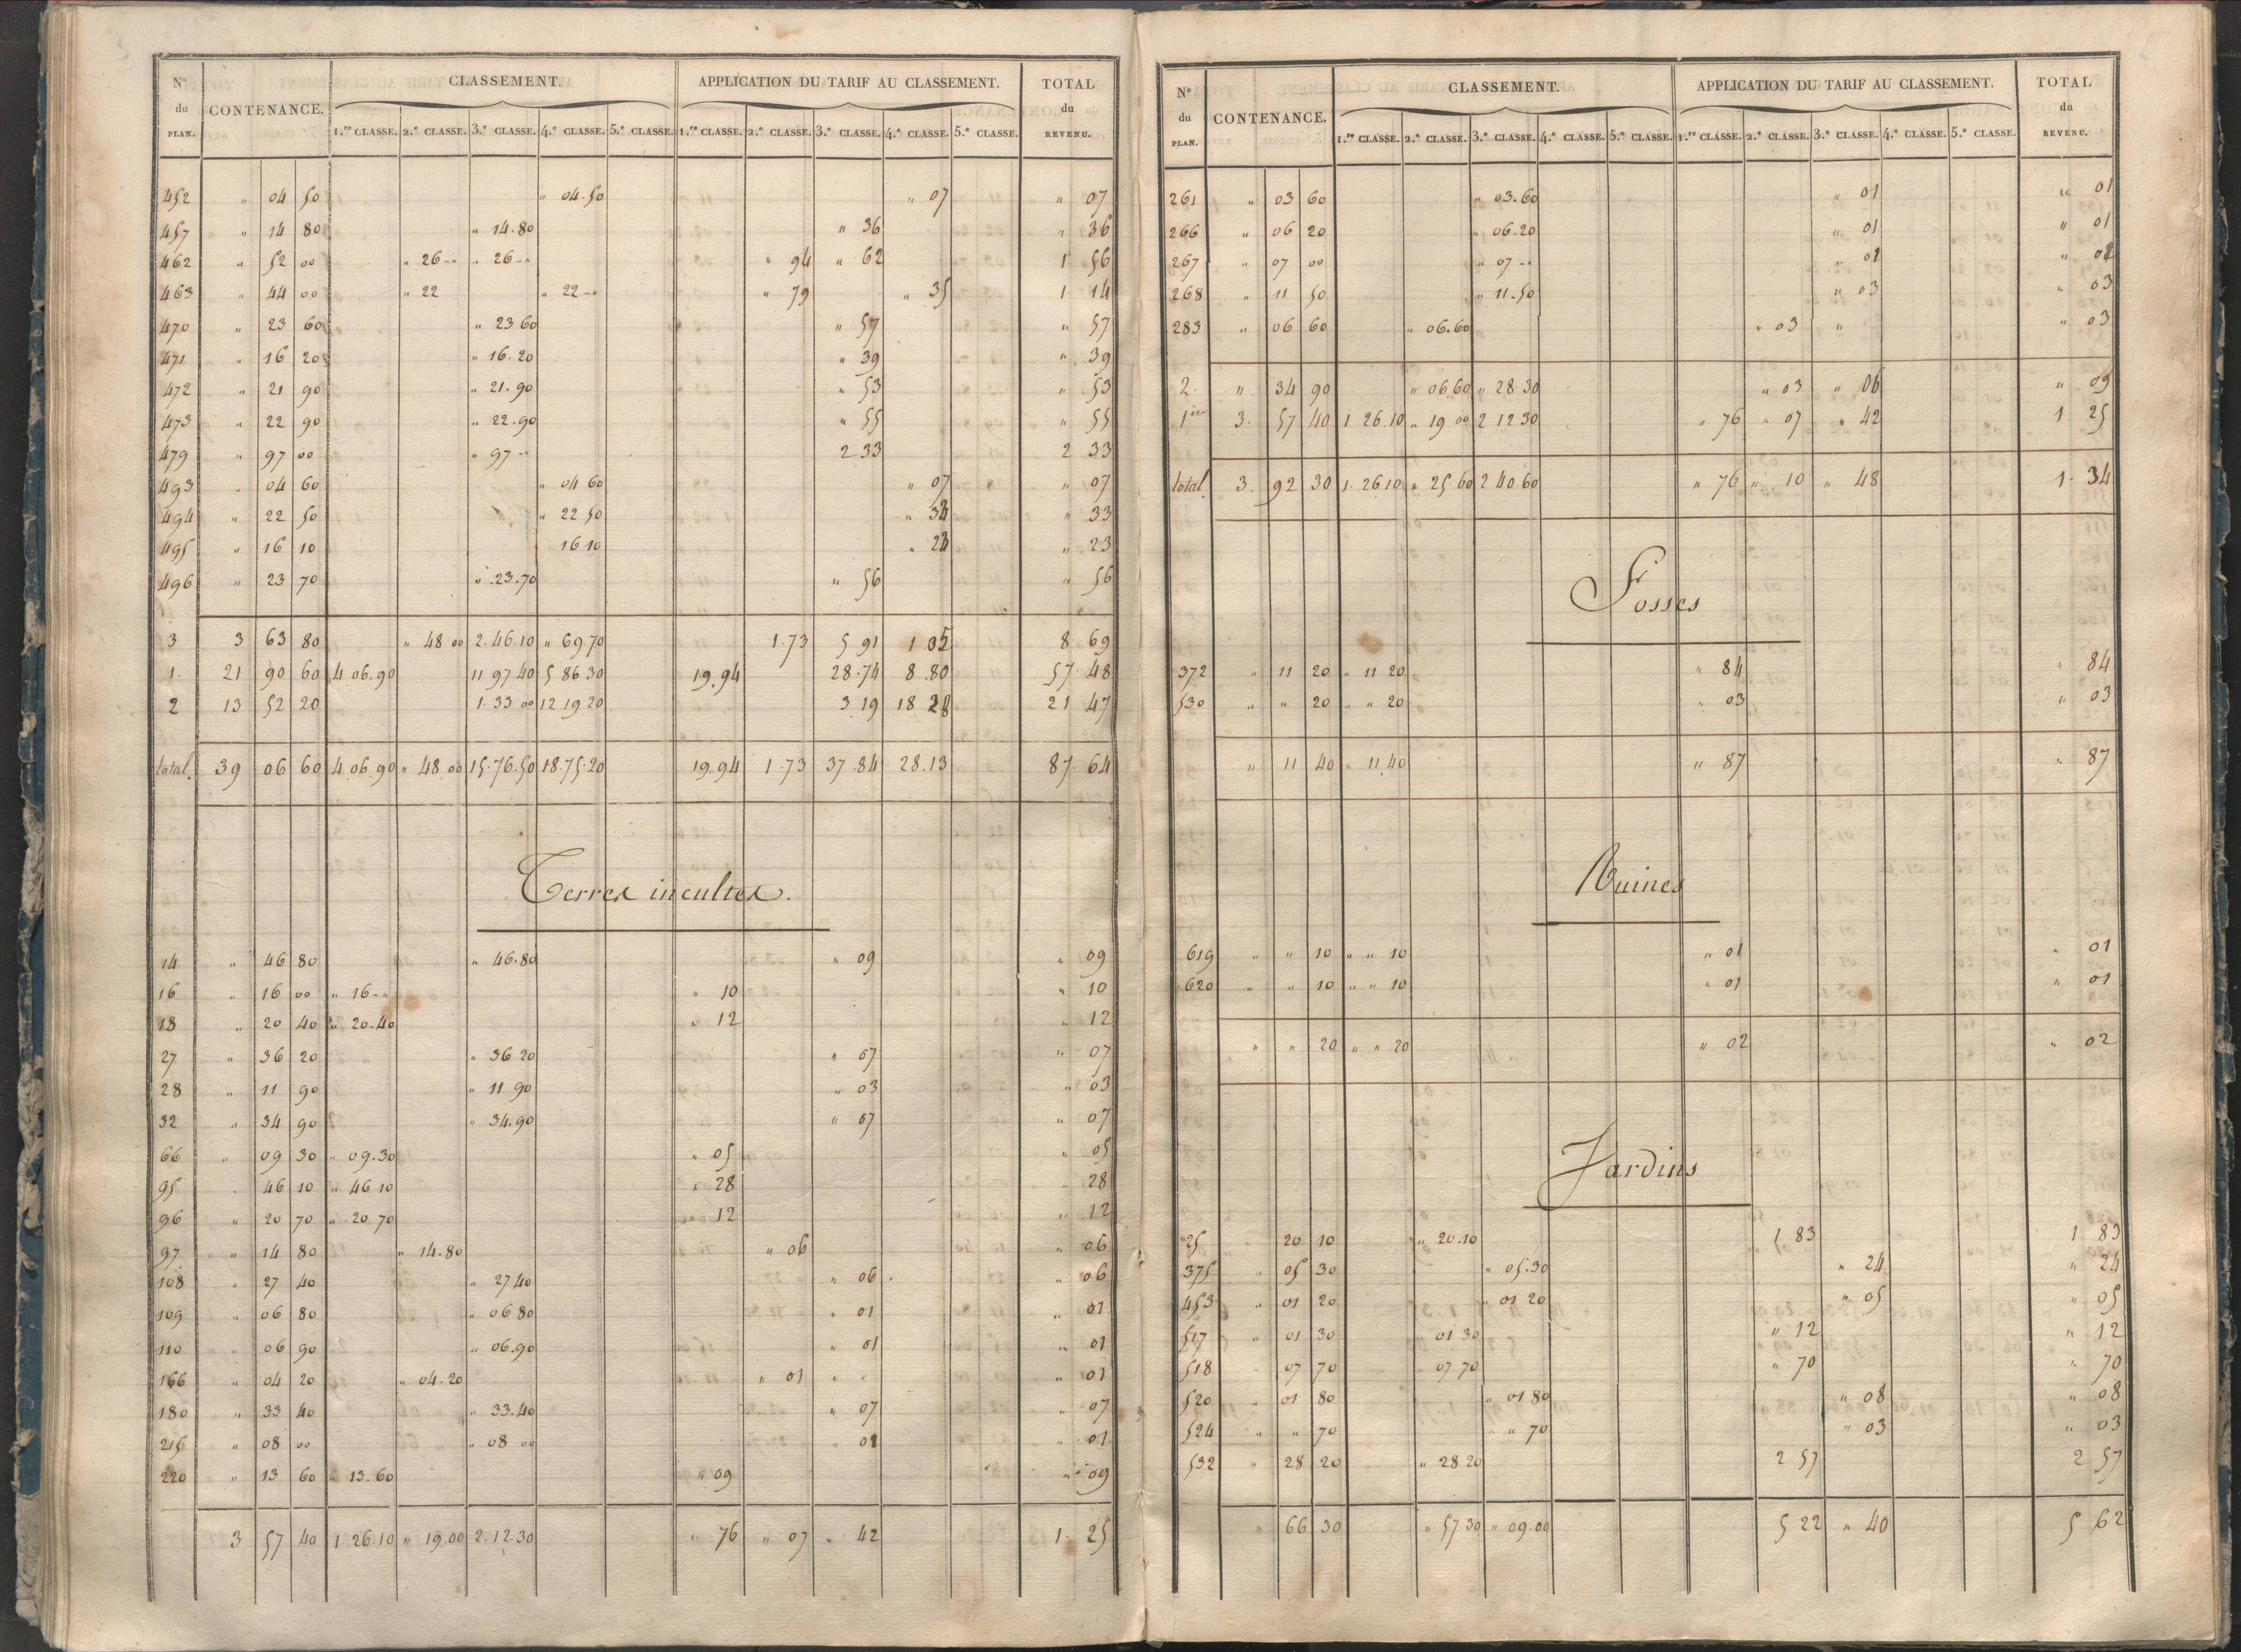 N° du PLAN. CONTENANCE. CLASSEMENT. APPLICATION DU TARIF AU CLASSEMENT. TOTAL du REVENU.
1.re CLASSE. 2.e CLASSE. 3.e CLASSE. 4.e CLASSE. 5.e CLASSE. 1.re CLASSE. 2.e CLASSE. 3.e CLASSE. 4.e CLASSE. 5.e CLASSE.
452 " 04 50 " 04.50 " 07 " 07
457 " 14 80 " 14.80 " 36 " 36
462 " 52 00 " 26-" " 26-" " 94 " 62 1 56
463 " 44 00 " 22 " 22-" " 79 " 35 1 14
470 " 23 60 " 23 60 " 57 " 57
471 " 16 20 " 16.20 " 39 " 39
472 " 21 90 " 21.90 " 53 " 53
473 " 22 90 " 22.90 " 55 " 55
479 " 97 00 " 97-" 2 33 2 33
493 " 04 60 " 04 60 " 07 " 07
494 " 22 50 " 22 50 " 33 " 33
495 " 16 10 16 10 " 23 " 23
496 " 23 70 " 23.70 " 56 " 56
3 3 63 80 " 48 00 2.46.10 " 69.70 1.73 5 91 1 05 8 69
1. 21 90 60 4 06.90 11 97 40 5 86 30 19.94 28.74 8.80 57 48
2 13 52 20 1.33 00 12 19 20 3 19 18 28 21 47
total. 39 06 60 4.06.90 " 48.00 15.76.50 18.75.20 19.94 1.73 37.84 28.13 87.64
Terres incultes.
14 " 46 80 " 46.80 " 09 " 09
16 " 16 00 " 16-" " 10 " 10
18 " 20 40 " 20.40 " 12 " 12
27 " 36 20 " 36 20 " 07 " 07
28 " 11 90 " 11 90 " 03 " 03
32 " 34 90 " 34.90 " 07 " 07
66 " 09 30 " 09.30 " 05 " 05
95 " 46 10 " 46 10 " 28 " 28
96 " 20 70 " 20 70 " 12 " 12
97 " 14 80 " 14.80 " 06 " 06
108 " 27 40 " 27 40 " 06 " 06
109 " 06 80 " 06 80 " 01 " 01
110 " 06 90 " 06.90 " 01 " 01
166 " 04 20 " 04.20 " 01 " " " 01
180 " 33 40 " 33.40 " 07 " 07
215 " 08 00 " 08 00 " 01 " 01
220 " 13 60 " 13.60 " 09 " 09
3 57 40 1 26.10 " 19.00 2.12.30 " 76 " 07 " 42 1. 25
N° du PLAN. CONTENANCE. CLASSEMENT. APPLICATION DU TARIF AU CLASSEMENT. TOTAL du REVENU.
1.re CLASSE. 2.e CLASSE. 3.e CLASSE. 4.e CLASSE. 5.e CLASSE. 1.re CLASSE. 2.e CLASSE. 3.e CLASSE. 4.e CLASSE. 5.e CLASSE.
261 " 03 60 " 03.60 " 01 " 01
266 " 06 20 " 06.20 " 01 " 01
267 " 07 00 " 07-" " 01 " 01
268 " 11 50 " 11.50 " 03 " 03
283 " 06 60 " 06.60 " 03 " " 03
2. " 34 90 " 06.60 " 28.30 " 03 " 06 " 09
1er 3. 57 40 1 26.10 " 19 00 2 12 30 " 76 " 07 " 42 1 25
total. 3. 92 30 1.26 10 " 25 60 2 40.60 " 76 " 10 " 48 1. 34
Fosses
372 " 11 20 " 11 20 " 84 " 84
530 " " 20 " " 20 " 03 " 03
" 11 40 " 11.40 " 87 " 87
Ruines
619 " " 10 " " 10 " 01 " 01
620 " " 10 " " 10 " 01 " 01
" " 20 " " 20 " 02 " 02
Jardins
25 " 20 10 " 20.10 1 83 1 83
375 " 05 30 " 05.30 " 24 " 24
453 " 01 20 " 01 20 " 05 " 05
517 " 01 30 " 01 30 " 12 " 12
518 " 07 70 " 07 70 " 70 " 70
520 " 01 80 " 01 80 " 08 " 08
524 " " 70 " " 70 " 03 " 03
532 " 28 20 " 28 20 2 57 2 57
" 66 30 " 57.30 " 09.00 5 22 " 40 5 62